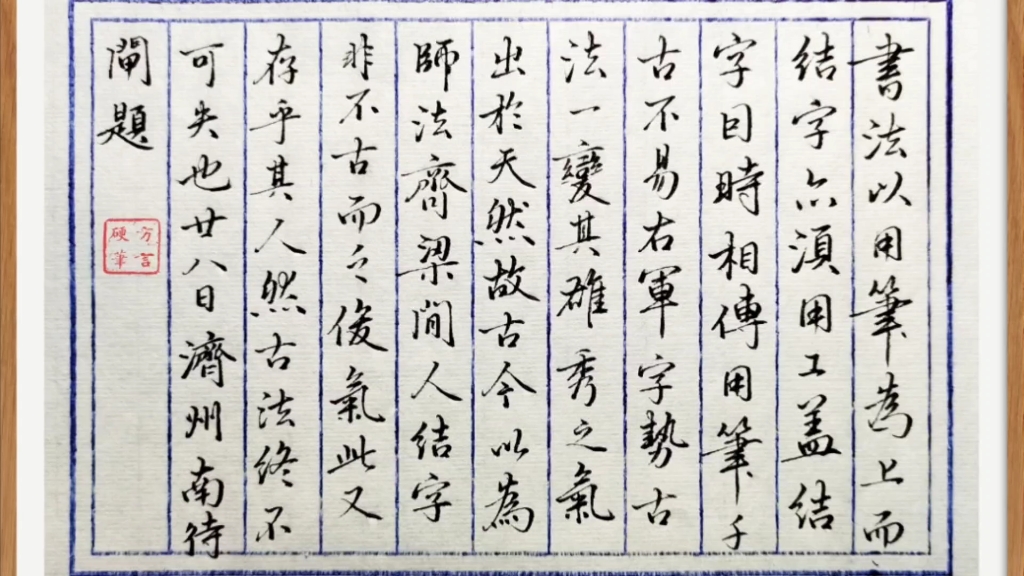 書法以用筆為上而
結字亦須用工盖結
字因時相傳用筆千
古不易右軍字勢古
法一變其雄秀之氣
出於天然故古今以為
師法齊梁間人結字
非不古而乏俊氣此又
存乎其人然古法終不
可失也廿八日濟州南待
閘題
方言
硬筆